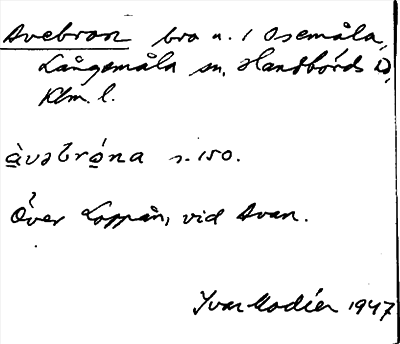 Avebron bro n. / Osemåla,
Långemåla sn, Handbörds hd,
Klm. l.
àvəbróna s. 150.
Över Loppån, vid Avan.
Yvar Modéer 1947